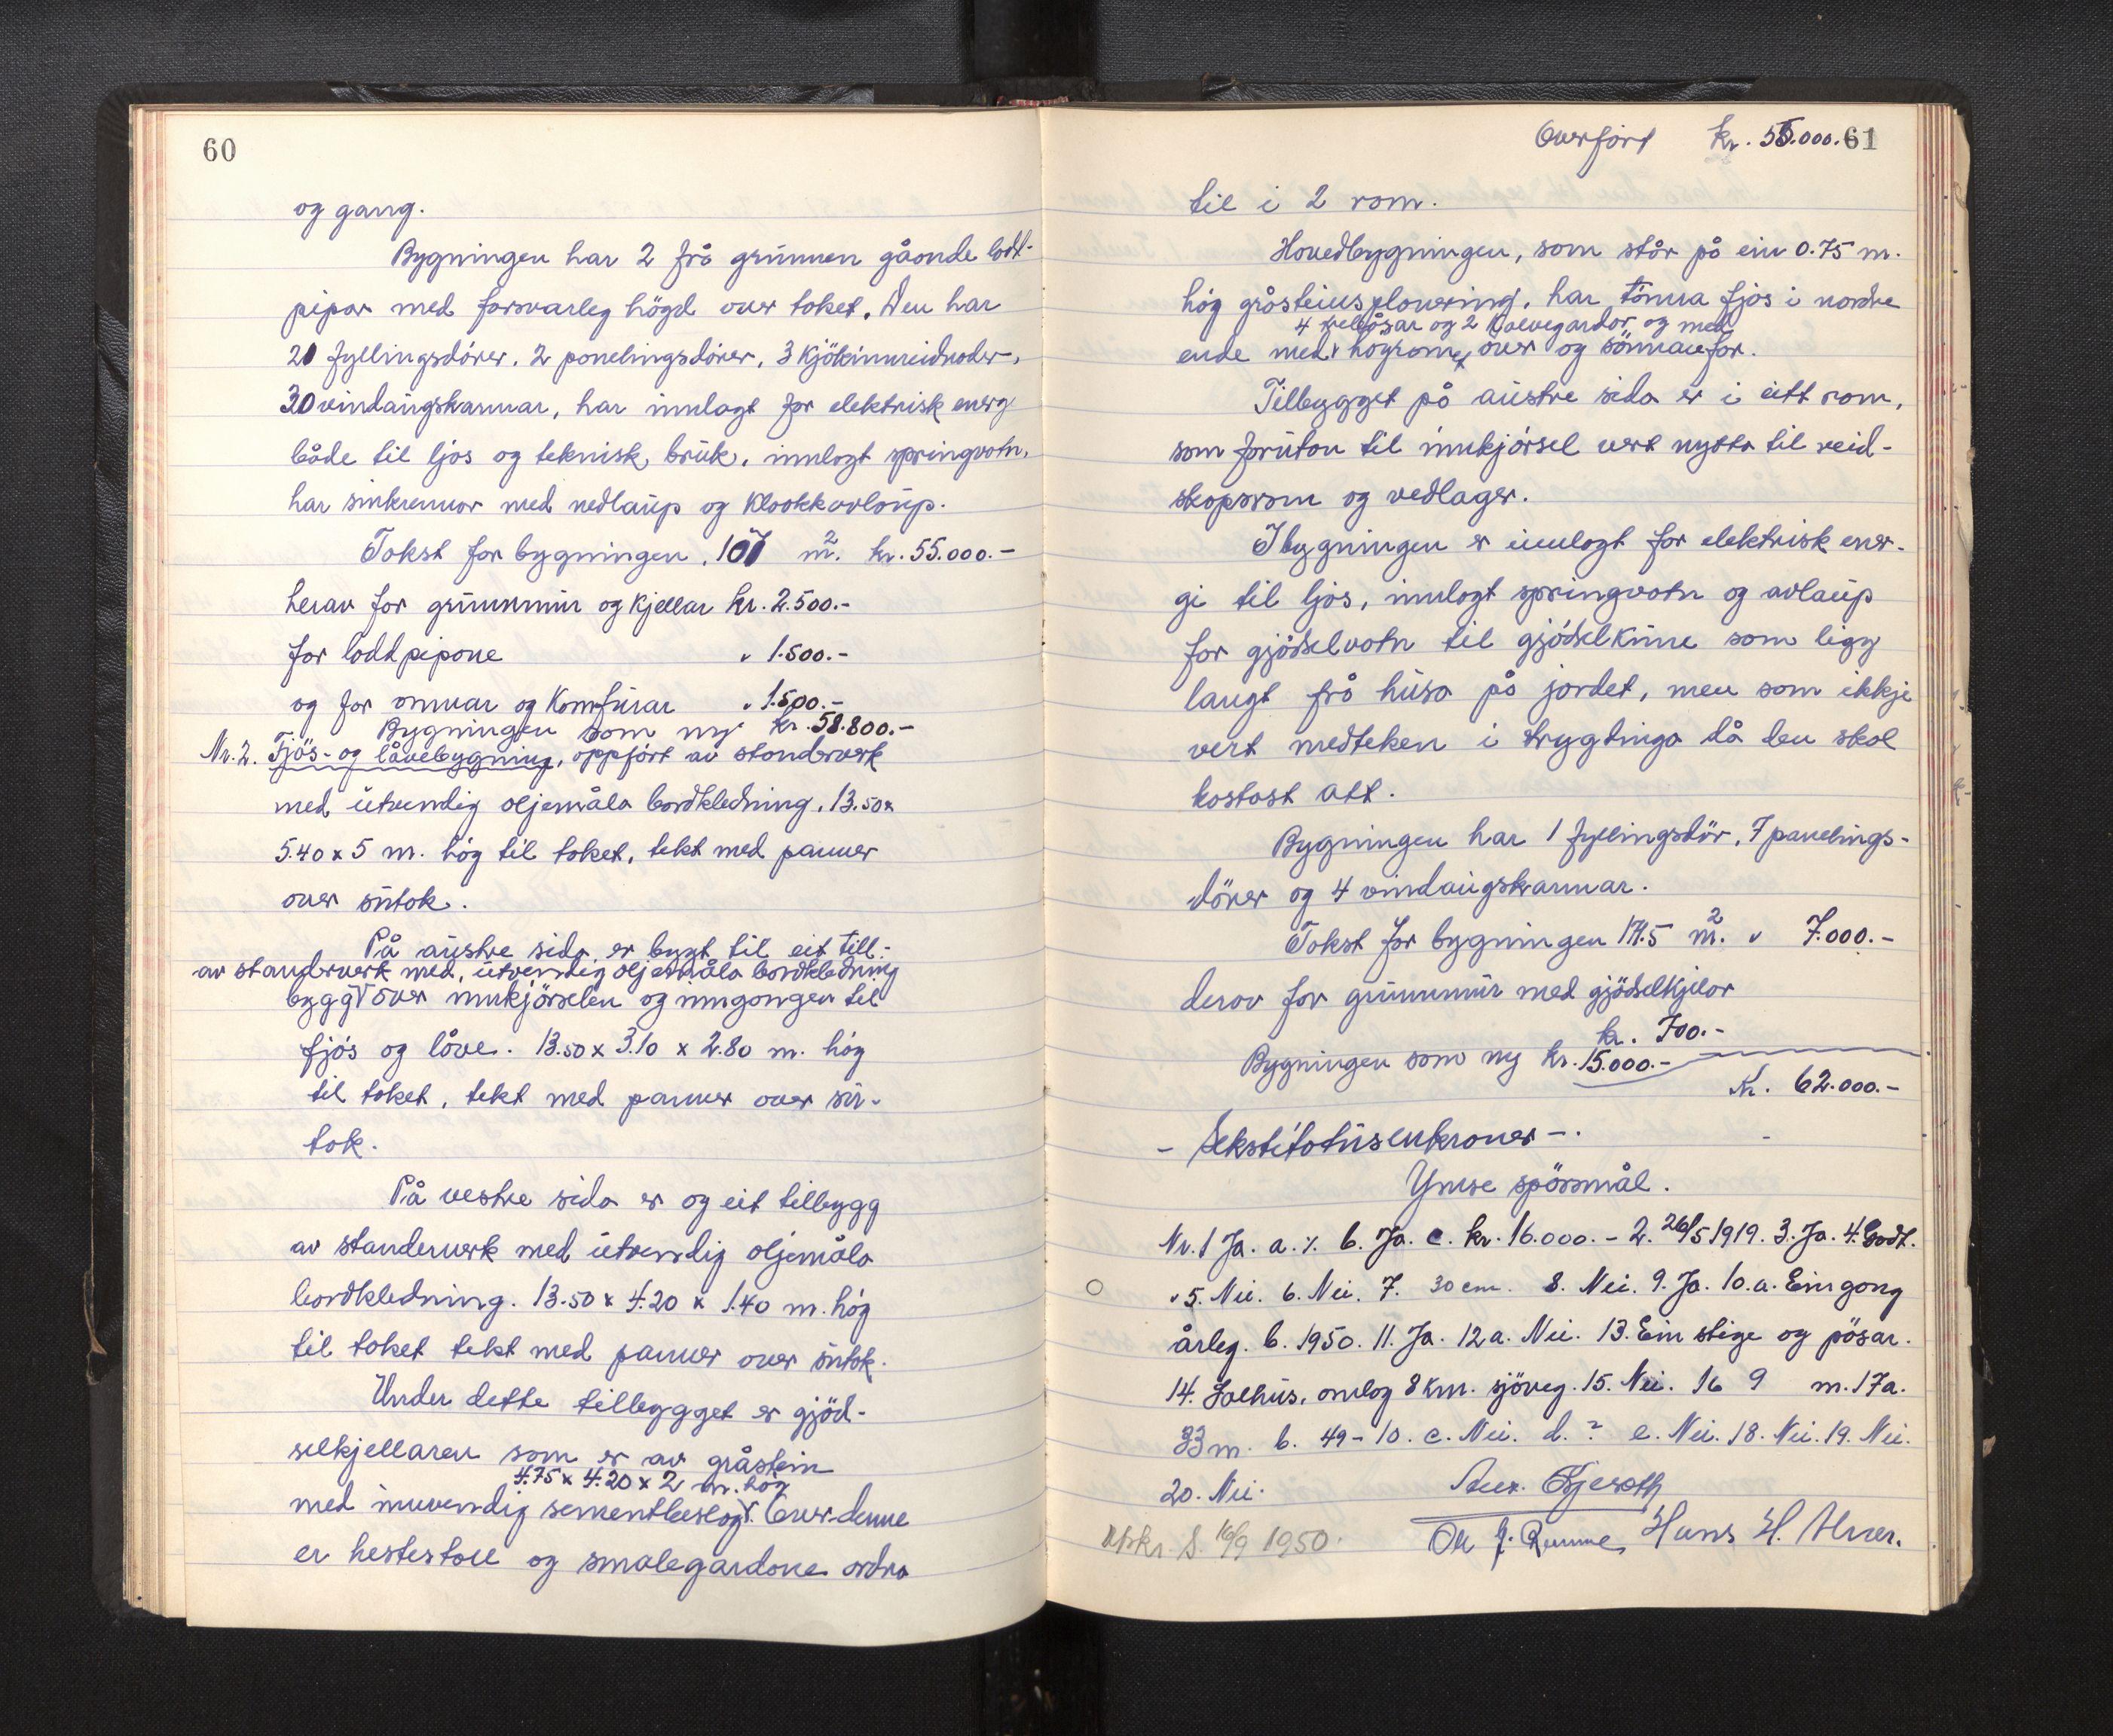 60
og gang.
Bygningen har 2 frå grunnen gåande lodd-
pipar med forsvarleg högd over taket. Den har
21 fyllingsdörer, 2 panelingsdörer, 3 kjökinnreidnader,
30 vindaugskarmar, har innlagt for elektrisk energ
både til ljos og teknisk bruk, innlagt springvatn,
har sinkrennor med nedlaup og klookkavlaup.
Takst for bygningen, 107 m². kr. 55.000.-
herav for grunnmur og kjellar kr. 2.500.-
for loddpipone " 1.500.-
og for omnar og komfurar " 1.500.-
Bygningen som ny kr. 58.800.-
Nr. 2. Fjös- og låvebygning, oppfört av standverk
med utvendig oljemåla bordkledning, 13.50 x
5.40 x 5 m. hög til taket, tekt med panner
over sutak.
På austre sida er bygt til eit till-
av standverk med utvendig oljemåla bordkledning
bygg over innkjörselen og inngongen til
fjös og låve. 13.50 x 3.10 x 2.80 m. hög
til taket, tekt med panner over su-
tak.
På vestre sida er og eit tilbygg
av standerverk med utvendig oljemåla
bordkledning. 13.50 x 4.20 x 1.40 m. hög
til taket tekt med panner over sutak.
Under dette tilbygget er gjöd-
selkjellaren som er av gråstein
4.75 x 4.20 x 2 m. hög
med innvendig sementbeslag. Over denne
er hestestall og smalegardane ordna
Overfört kr. 55.000.- 61
til i 2 rom.
Hovedbygningen, som står på ein 0.75 m.
hög gråsteins, har tönna fjös i nordre
4 båsar og 2 kalvegardar og med
ende med högrom over og sönnanfor.
Tilbygget på austre sida er i eitt rom,
som forutan til innkjörsel vert nytta til reid-
skapsrom og vedlager.
I bygningen er innlagt for elektrisk ener-
gi til ljos, innlagt springvatn og avlaup
for gjödselvatn til gjödselkum som ligg
langt frå husa på jordet, men som ikkje
vert medteken i trygdinga då den skal
kastast att.
Bygningen har 1 fyllingsdör, 7 panelings-
dörer og 4 vindaugskarmar.
Takst for bygningen 174.5 m². " 7.000.-
derav for grunnmur med gjödselkjelar
kr. 700.-
Bygningen som ny kr. 15.000.-
Kr. 62.000.-
- Sekstitotusenkroner -.
Ymse spörsmål.
Nr. 1 Ja. a. %. b. Ja. c. kr. 16.000.- 2. 26/5 1919. 3. Ja. 4. Godt.
" 5. Nei. 6. Nei. 7. 30 cm. 8. Nei. 9. Ja. 10. a. Ein gong
årleg. b. 1950. 11. Ja. 12 a. Nei. 13. Ein stige og pösar.
14. Salhus, omlag 8 km. sjöveg. 15. Nei. 16 9 m. 17a.
33 m. b. 49-10. c. Nei. d. ? e. Nei. 18. Nei. 19. Nei.
20. Nei.
Utskr. S. 16/9 1950. Hans H.